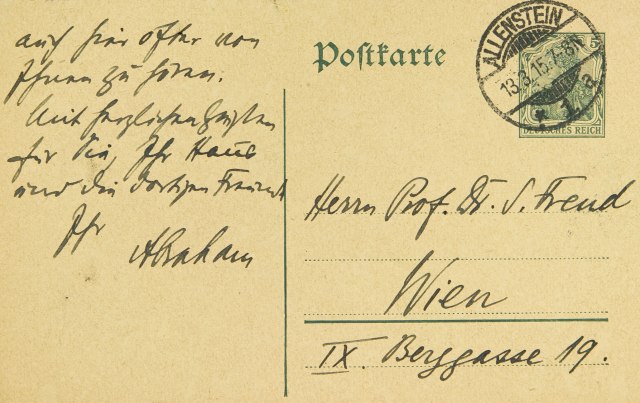 auch hier öfter von
Ihnen zu hören.
Mit herzlichen Grüßen
für Sie, Ihr Haus
und die dortigen Freunde
Ihr
Abraham
Postkarte
ALLENSTEIN
13.3.15.7-8N
* 1. a
5
DEUTSCHES REICH
Herrn Prof. Dr. S. Freud
Wien
IX. Berggasse 19.